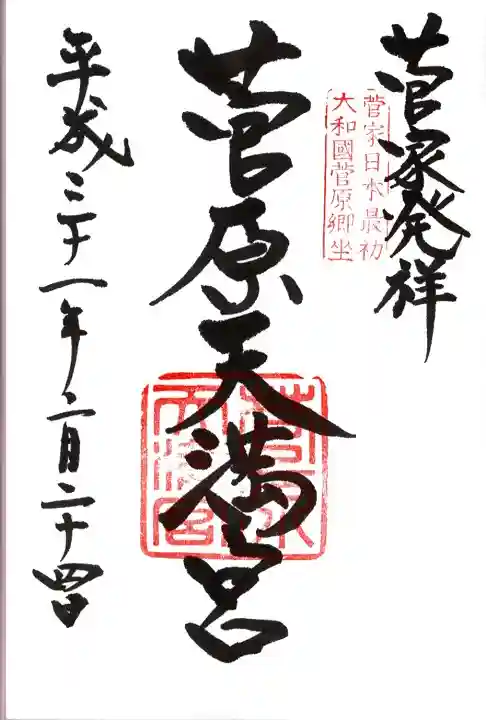 菅家発祥
菅家日本最初
大和國菅原郷坐
菅原天満宮
菅原天満宮
平成三十一年二月二十四日